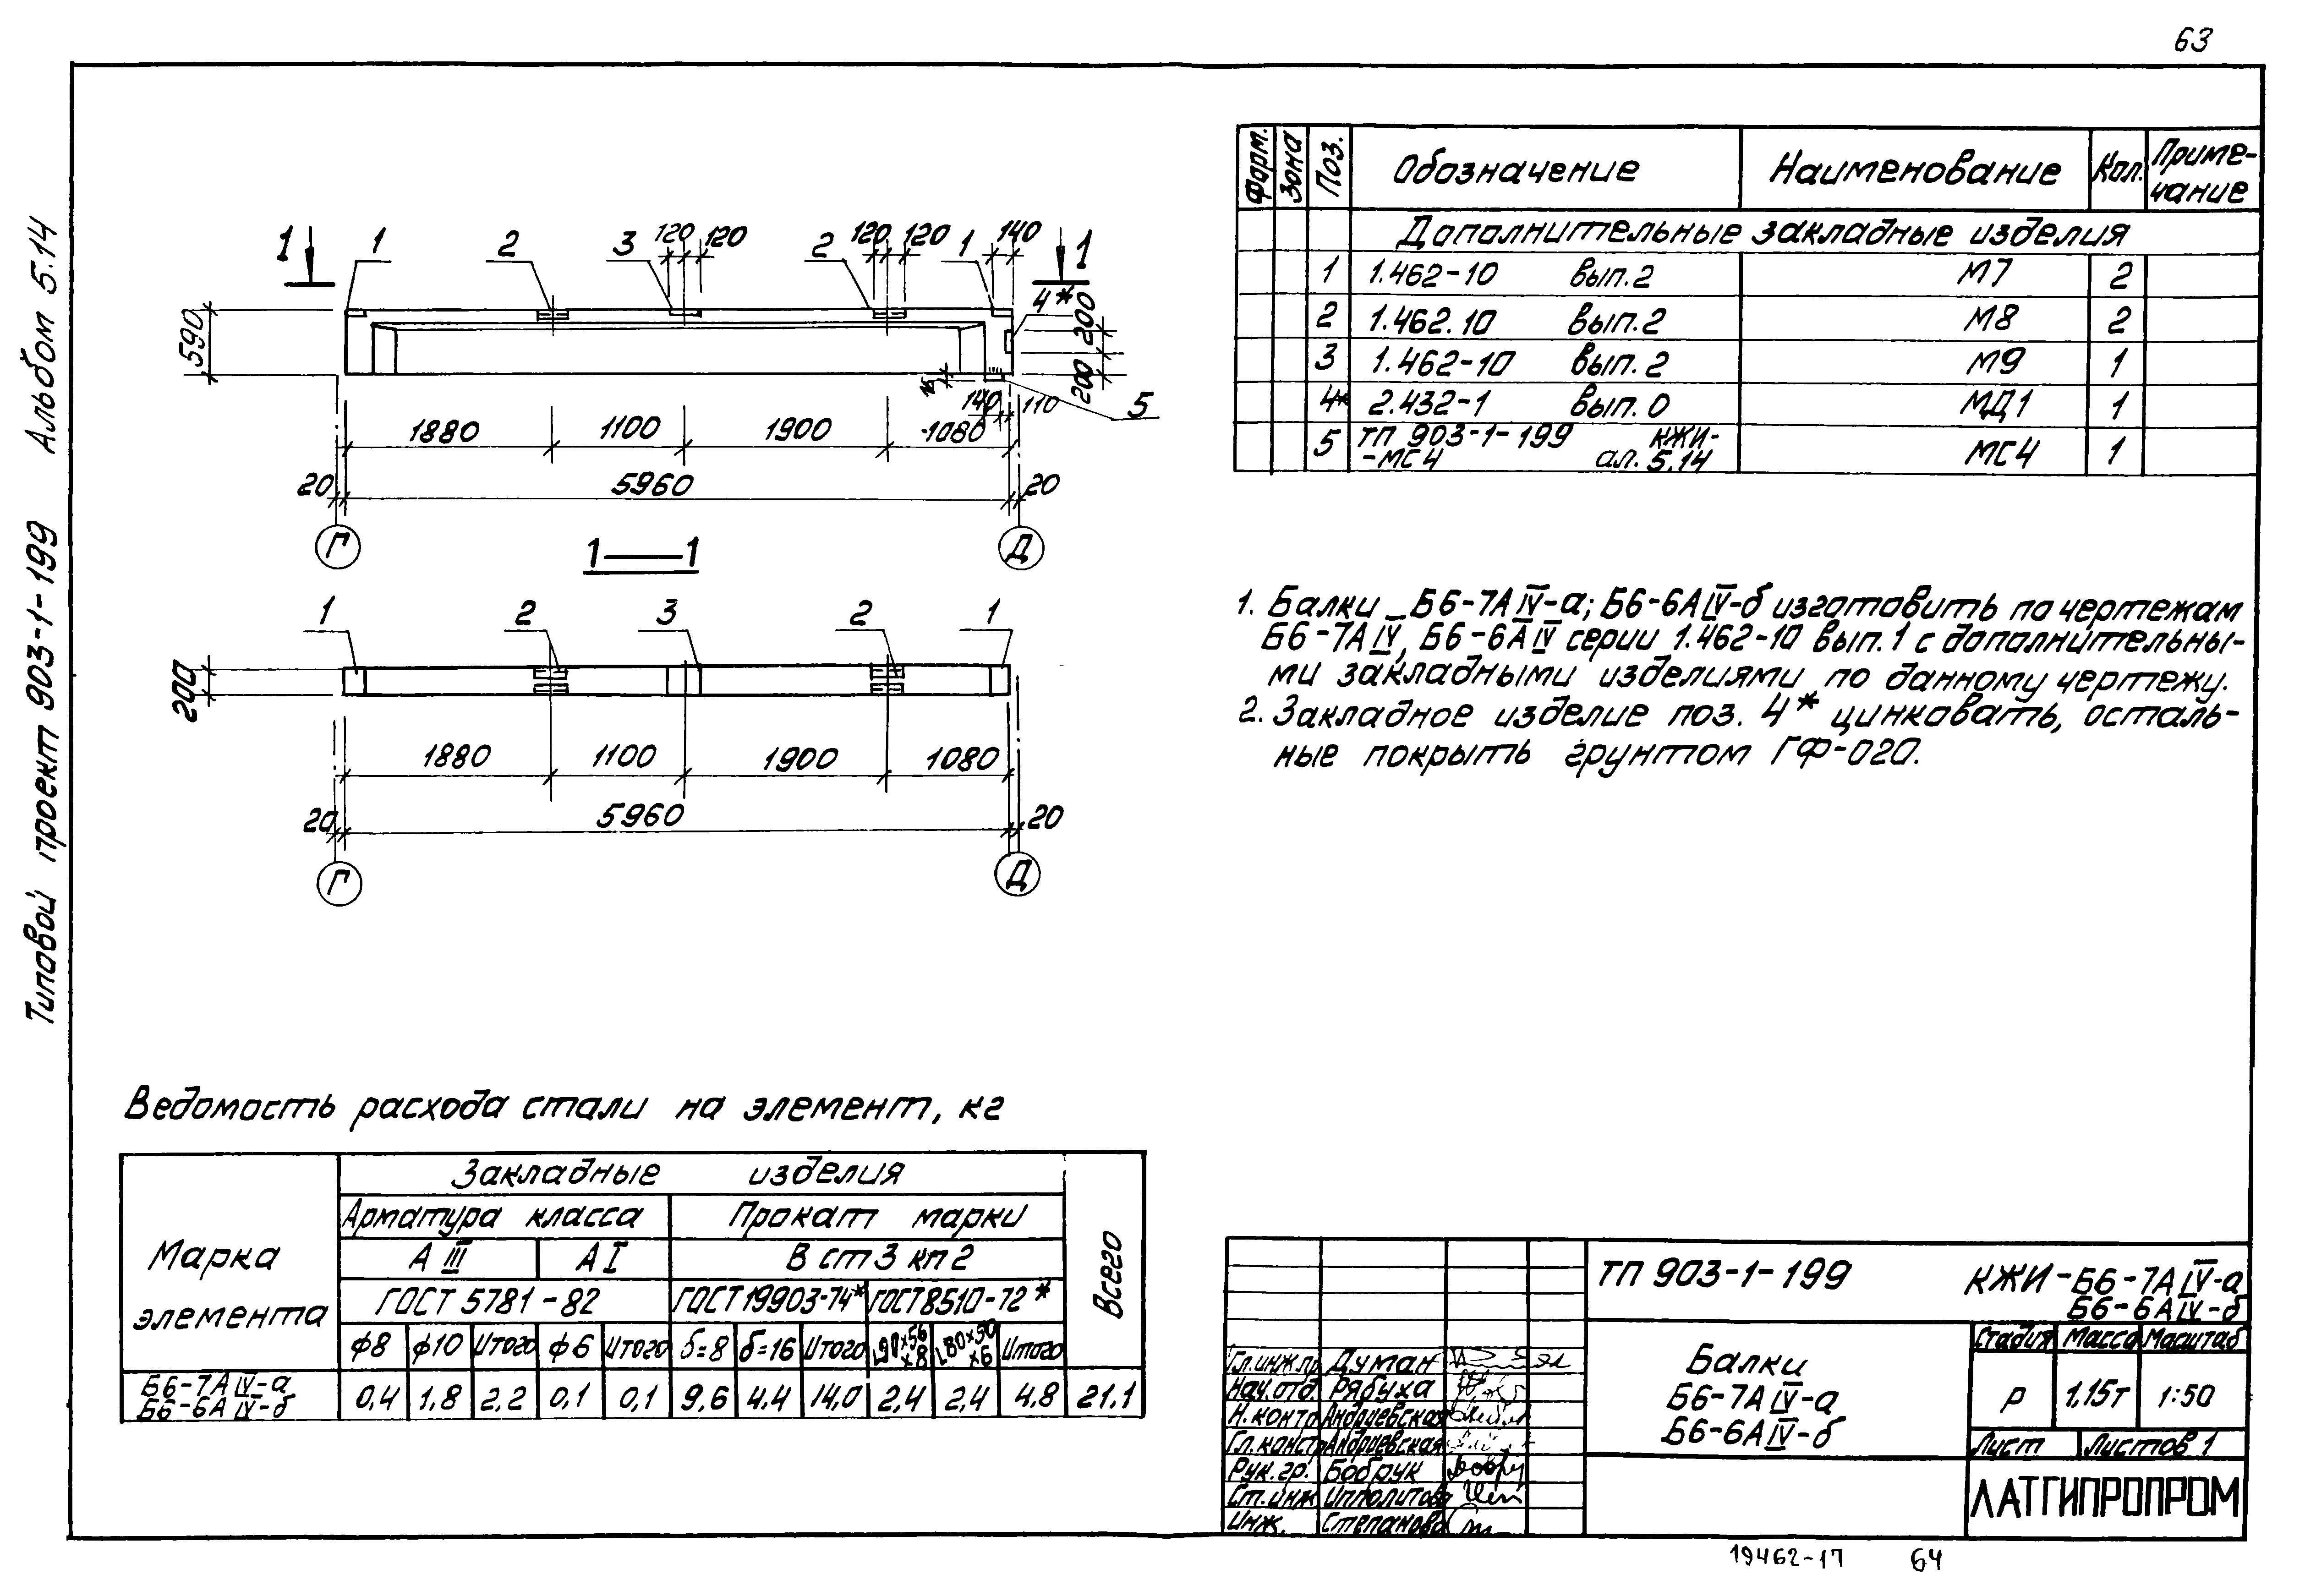 63
Типовой проект 903-1-199 Альбом 5.14
1 1 2 3 120 120 2 120 120 1 140 1
4*
590
200
200
15
140 110
5
1880 1100 1900 1080
20 5960 20
Г Д
1—1
1 2 3 2 1
200
1880 1100 1900 1080
20 5960 20
Г Д
Форм. Зона Поз. Обозначение Наименование Кол. Приме-
чание
Дополнительные закладные изделия
1 1.462-10 вып.2 М7 2
2 1.462.10 вып.2 М8 2
3 1.462-10 вып.2 М9 1
4* 2.432-1 вып.0 МД1 1
5 ТП 903-1-199 КЖИ-
-МС4 ал. 5.14 МС4 1
1. Балки Б6-7АIV-а; Б6-6АIV-б изготовить по чертежам
Б6-7АIV, Б6-6АIV серии 1.462-10 вып.1 с дополнительны-
ми закладными изделиями по данному чертежу.
2. Закладное изделие поз. 4* цинковать, осталь-
ные покрыть грунтом ГФ-020.
Ведомость расхода стали на элемент, кг
Марка
элемента
Закладные изделия
Всего
Арматура класса Прокат марки
А III А I В ст 3 кп 2
ГОСТ 5781-82 ГОСТ 19903-74* ГОСТ 8510-72*
ф8 ф10 Итого ф6 Итого б=8 б=16 Итого L90×56×8 L80×50×6 Итого
Б6-7АIV-а
Б6-6АIV-б
0,4 1,8 2,2 0,1 0,1 9,6 4,4 14,0 2,4 2,4 4,8 21.1
ТП 903-1-199 КЖИ-Б6-7АIV-а
Б6-6АIV-б
Гл.инж.пр. Думан
Нач.отд. Рябуха
Н.контр. Андриевская
Гл.констр. Андриевская
Рук.гр. Бобрук
Ст.инж Ипполитова
Инж. Степанова
Балки
Б6-7АIV-а
Б6-6АIV-б
Стадия Масса Масштаб
Р 1,15т 1:50
Лист Листов 1
ЛАТГИПРОПРОМ
19462-17 64